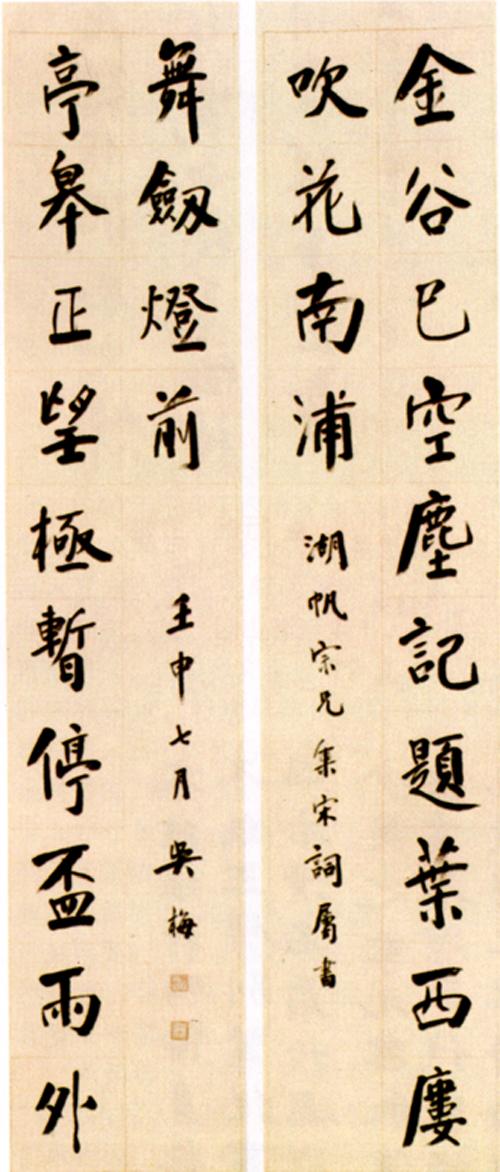 金谷已空塵記題葉西廔
吹花南浦
湖帆宗兄集宋詞屬書
亭皋正望極暫停盃雨外
舞劒燈前
壬申七月吳梅